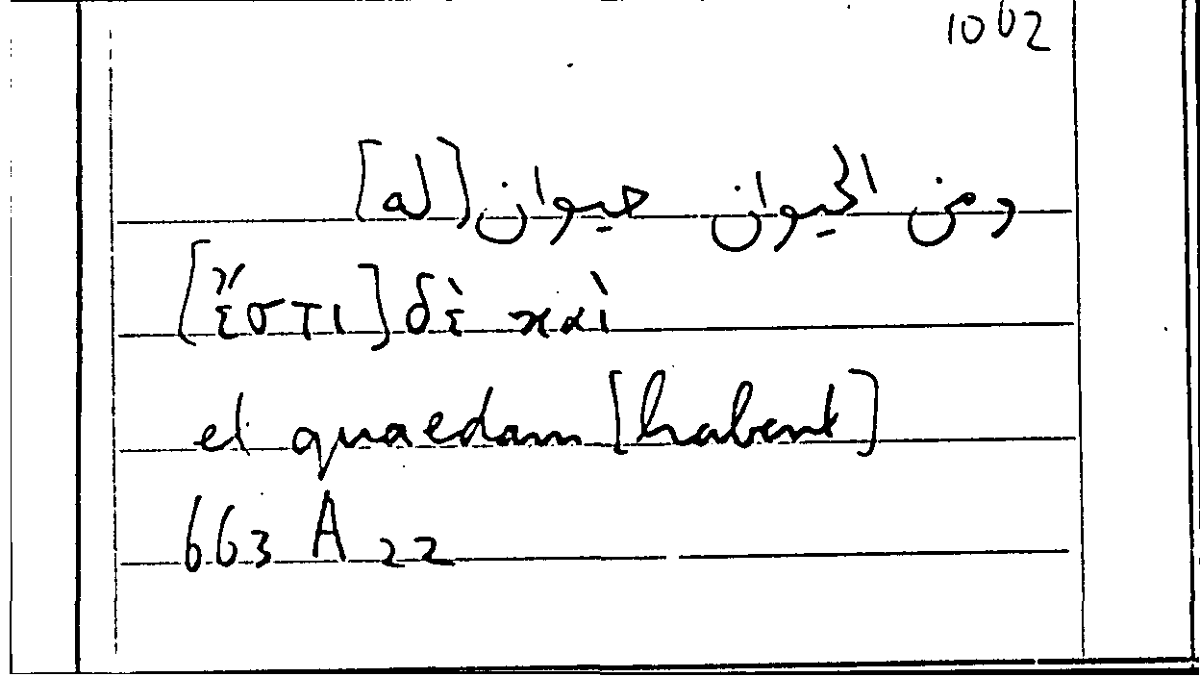 1062
ومن الحيوان حيوان [له]
[ἔστι] δὲ καὶ
et quaedam [habent]
663 A 22